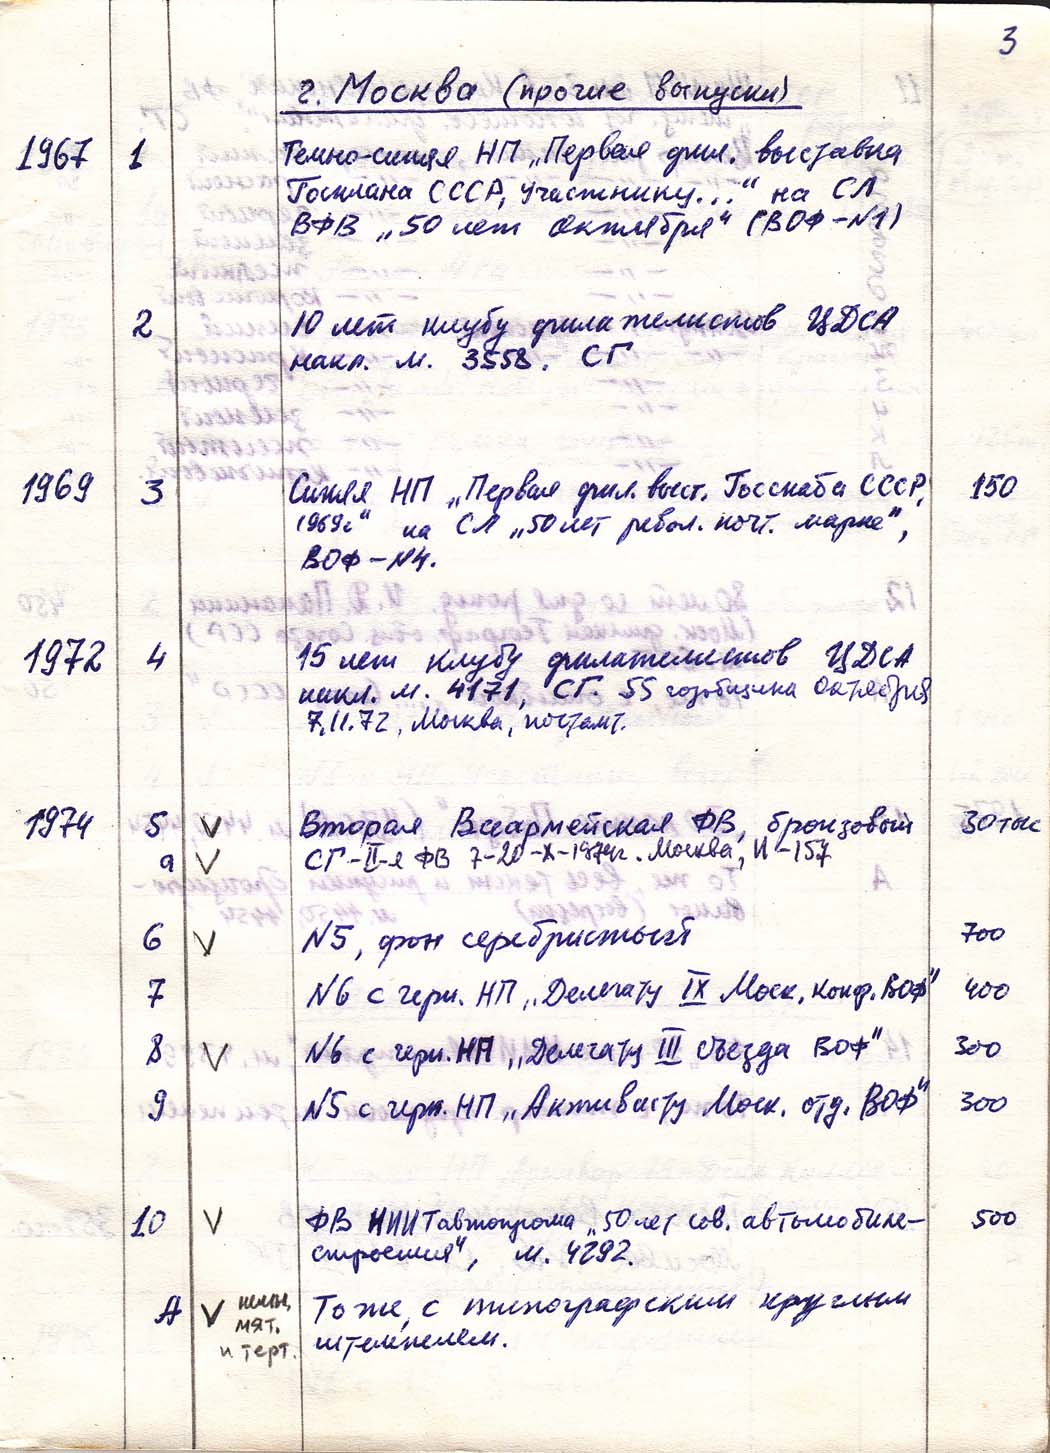 3
г. Москва (прочие выпуски)
1967 1 Темно-синяя НП „Первая фил. выставка
Госплана СССР, Участнику..." на СЛ
ВФВ „50 лет Октября" (ВОФ-N1)
2 10 лет клубу филателистов ЦДСА
накл. м. 3558. СГ
1969 3 Синяя НП „Первая фил. выст. Госснаба СССР, 150
1969г" на СЛ „50 лет револ. почт. марке",
ВОФ-N4.
1972 4 15 лет клубу филателистов ЦДСА
накл. м. 4171, СГ. 55 годовщина Октября
7.11.72, Москва, почтамт.
1974 5 V Вторая Всеармейская ФВ, бронзовый 30 тыс
а V СГ-II-я ФВ 7-20-X-1974г. Москва, И-157
6 V N5, фон серебристый 700
7 N6 с черн. НП „Делегату IX Моск. конф. ВОФ" 400
8 V N6 с черн. НП „Делегату III съезда ВОФ" 300
9 N5 с черн. НП „Активисту Моск. отд. ВОФ" 300
10 V ФВ НИИТавтопрома „50 лет сов. автомобиле- 500
строения", м. 4292.
А V То же, с типографским круглым
мят.
и терт.
штемпелем.